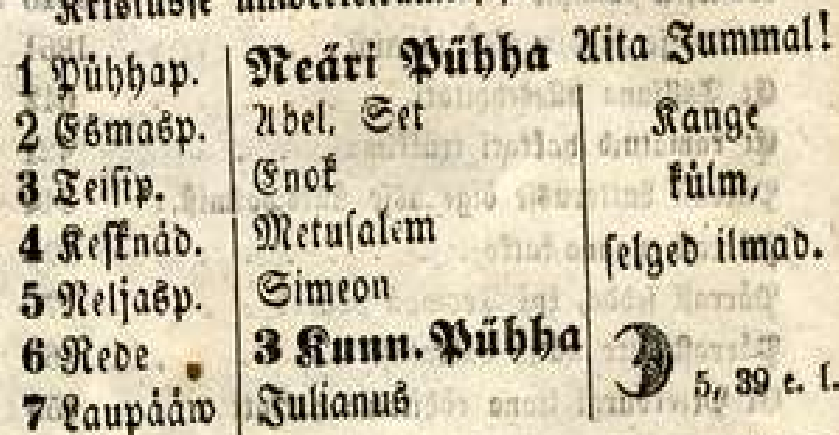 Kristusse
1 Pühhap. Neäri Pühha Aita Jummal!
2 Esmasp. Abel. Set Kange
3 Teisip. Enok külm,
4 Kesknäd. Metusalem selged ilmad.
5 Neljasp. Simeon
6 Rede. 3 Kunn. Pühha
7 Laupääw Julianus 5,, 39 e. l.